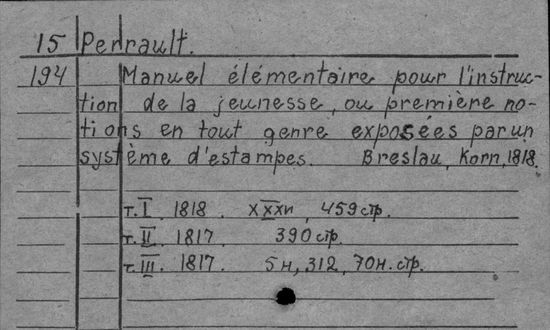 15 Perrault.
194 Manuel élémentaire pour l'instruc-
tion de la jeunesse, ou première no-
tions en tout genre exposées par un
système d'estampes. Breslau, Korn, 1818.
т. I. 1818. XXXII, 459 стр.
т. II. 1817. 390 стр.
т. III. 1817. 5н, 312, 70н. стр.